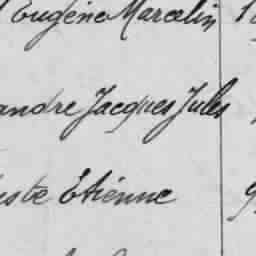 Eugène Marcelin
andre Jacques Jules
uste Etienne